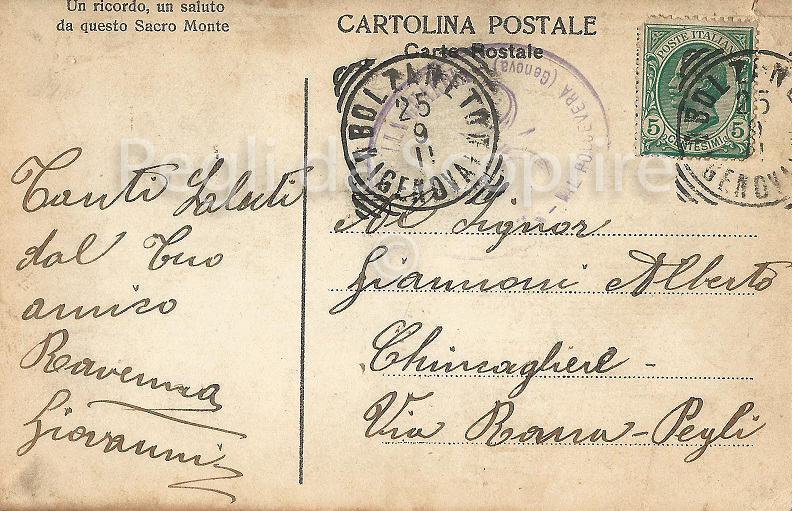 Un ricordo, un saluto
da questo Sacro Monte
CARTOLINA POSTALE
Carte Postale
POSTE ITALIANE
5 CENTESIMI 5
BOLZANETO
25
9
11
(GENOVA)
BOLZANETO
25
9
11
(GENOVA)
(Genova)
POLCEVERA
Pegli da Scoprire
©
Tanti Saluti
dal Tuo
amico
Ravenna
Giovanni
Al Signor
Giannoni Alberto
Chincagliere -
Via Roma - Pegli